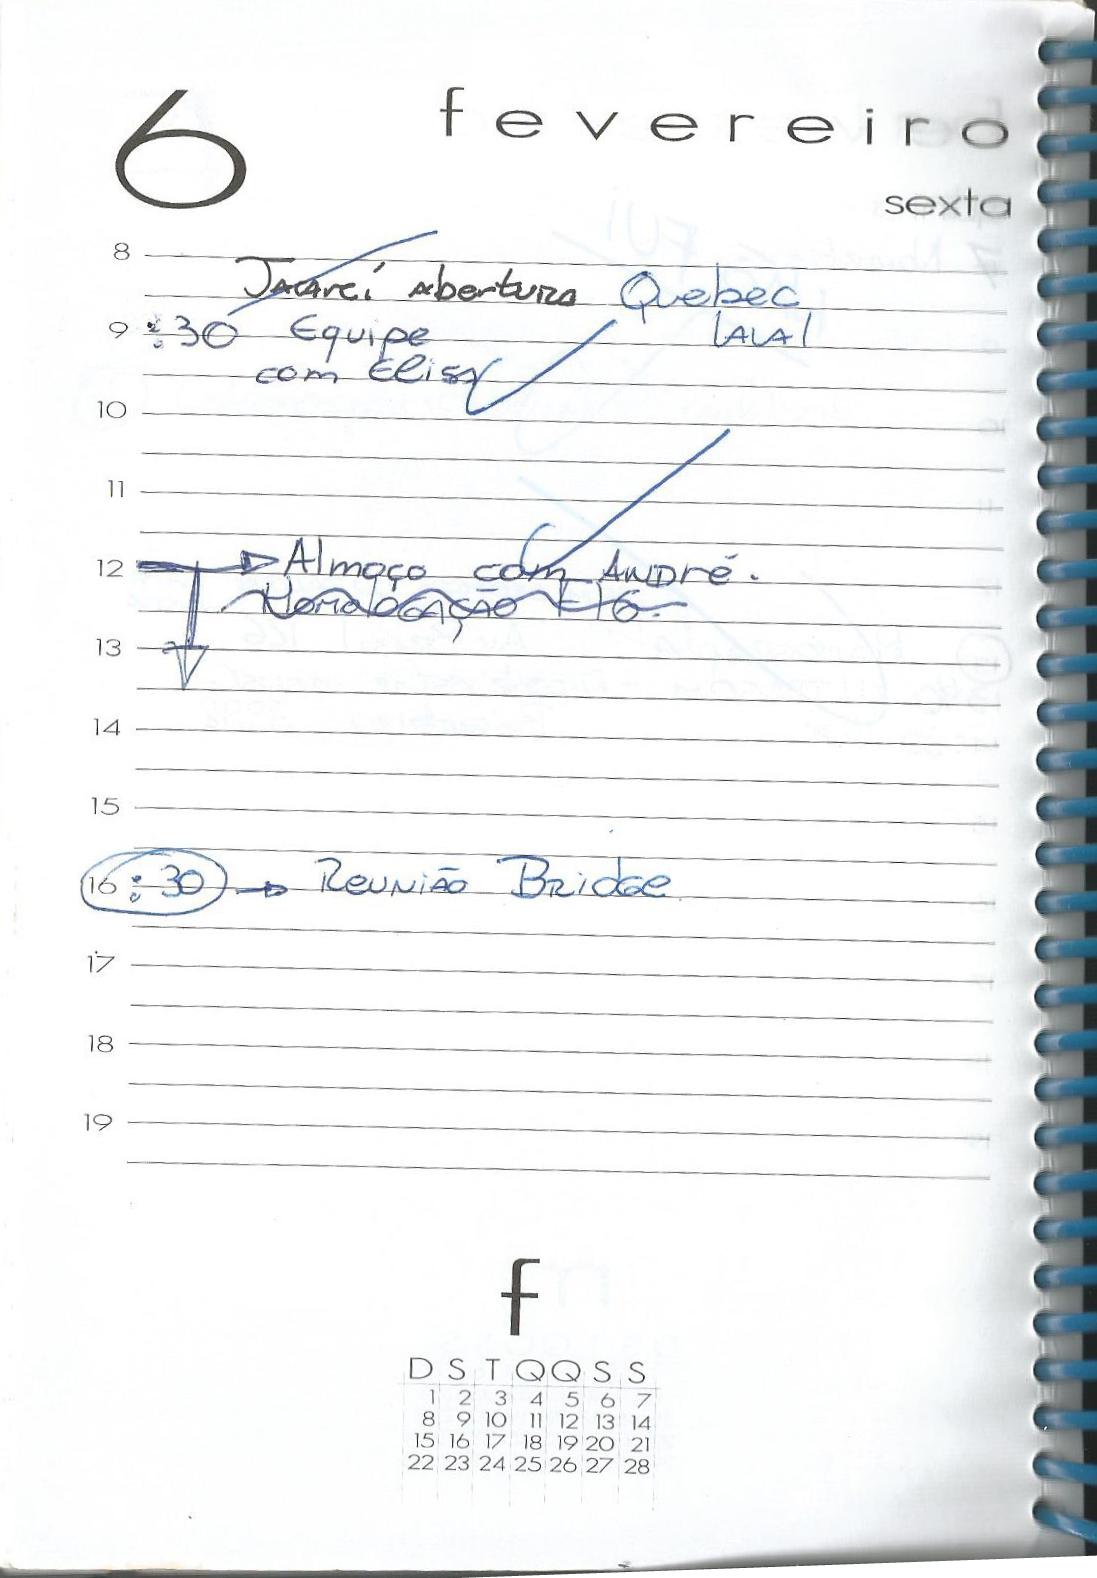 6 fevereiro
sexta
8
Jacareí abertura Quebec
9 :30 Equipe
com Elisa
10
11
12 Almoço com André.
Homologação
13
14
15
16 :30 → Reunião Bridge
17
18
19
f
D S T Q Q S S
1 2 3 4 5 6 7
8 9 10 11 12 13 14
15 16 17 18 19 20 21
22 23 24 25 26 27 28